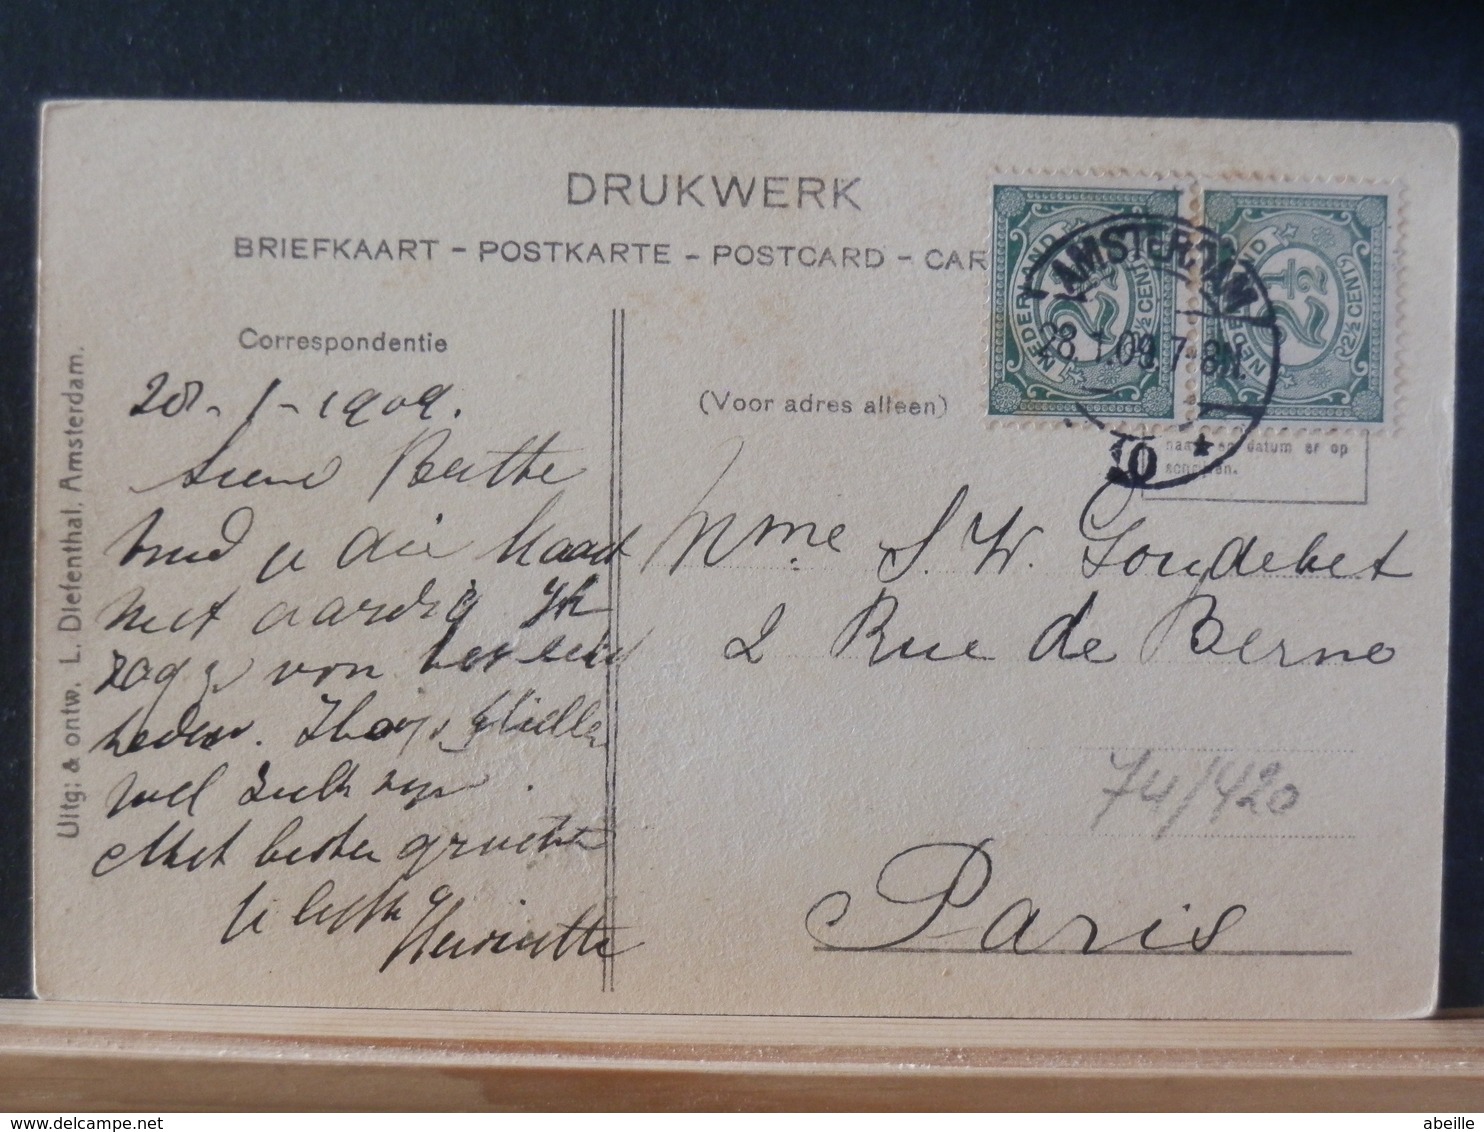 DRUKWERK
BRIEFKAART - POSTKARTE - POSTCARD - CAR
Correspondentie
(Voor adres alleen)
Uitg: & ontw. L. Diefenthal. Amsterdam.
NEDERLAND 2½ (2½ CENT)
NEDERLAND 2½ (2½ CENT)
AMSTERDAM
28.1.09 7-8N.
10
naam en datum er op
schrijven.
28-1-1909.
Lieve Berthe
vind u die kaart
niet aardig Ik
zag ze van
heden.
wel zulk zijn.
Met beste groeten
u liefh
Henriette
Mme. S. W. Goudeket
2 Rue de Berne
74/420
Paris
abeille